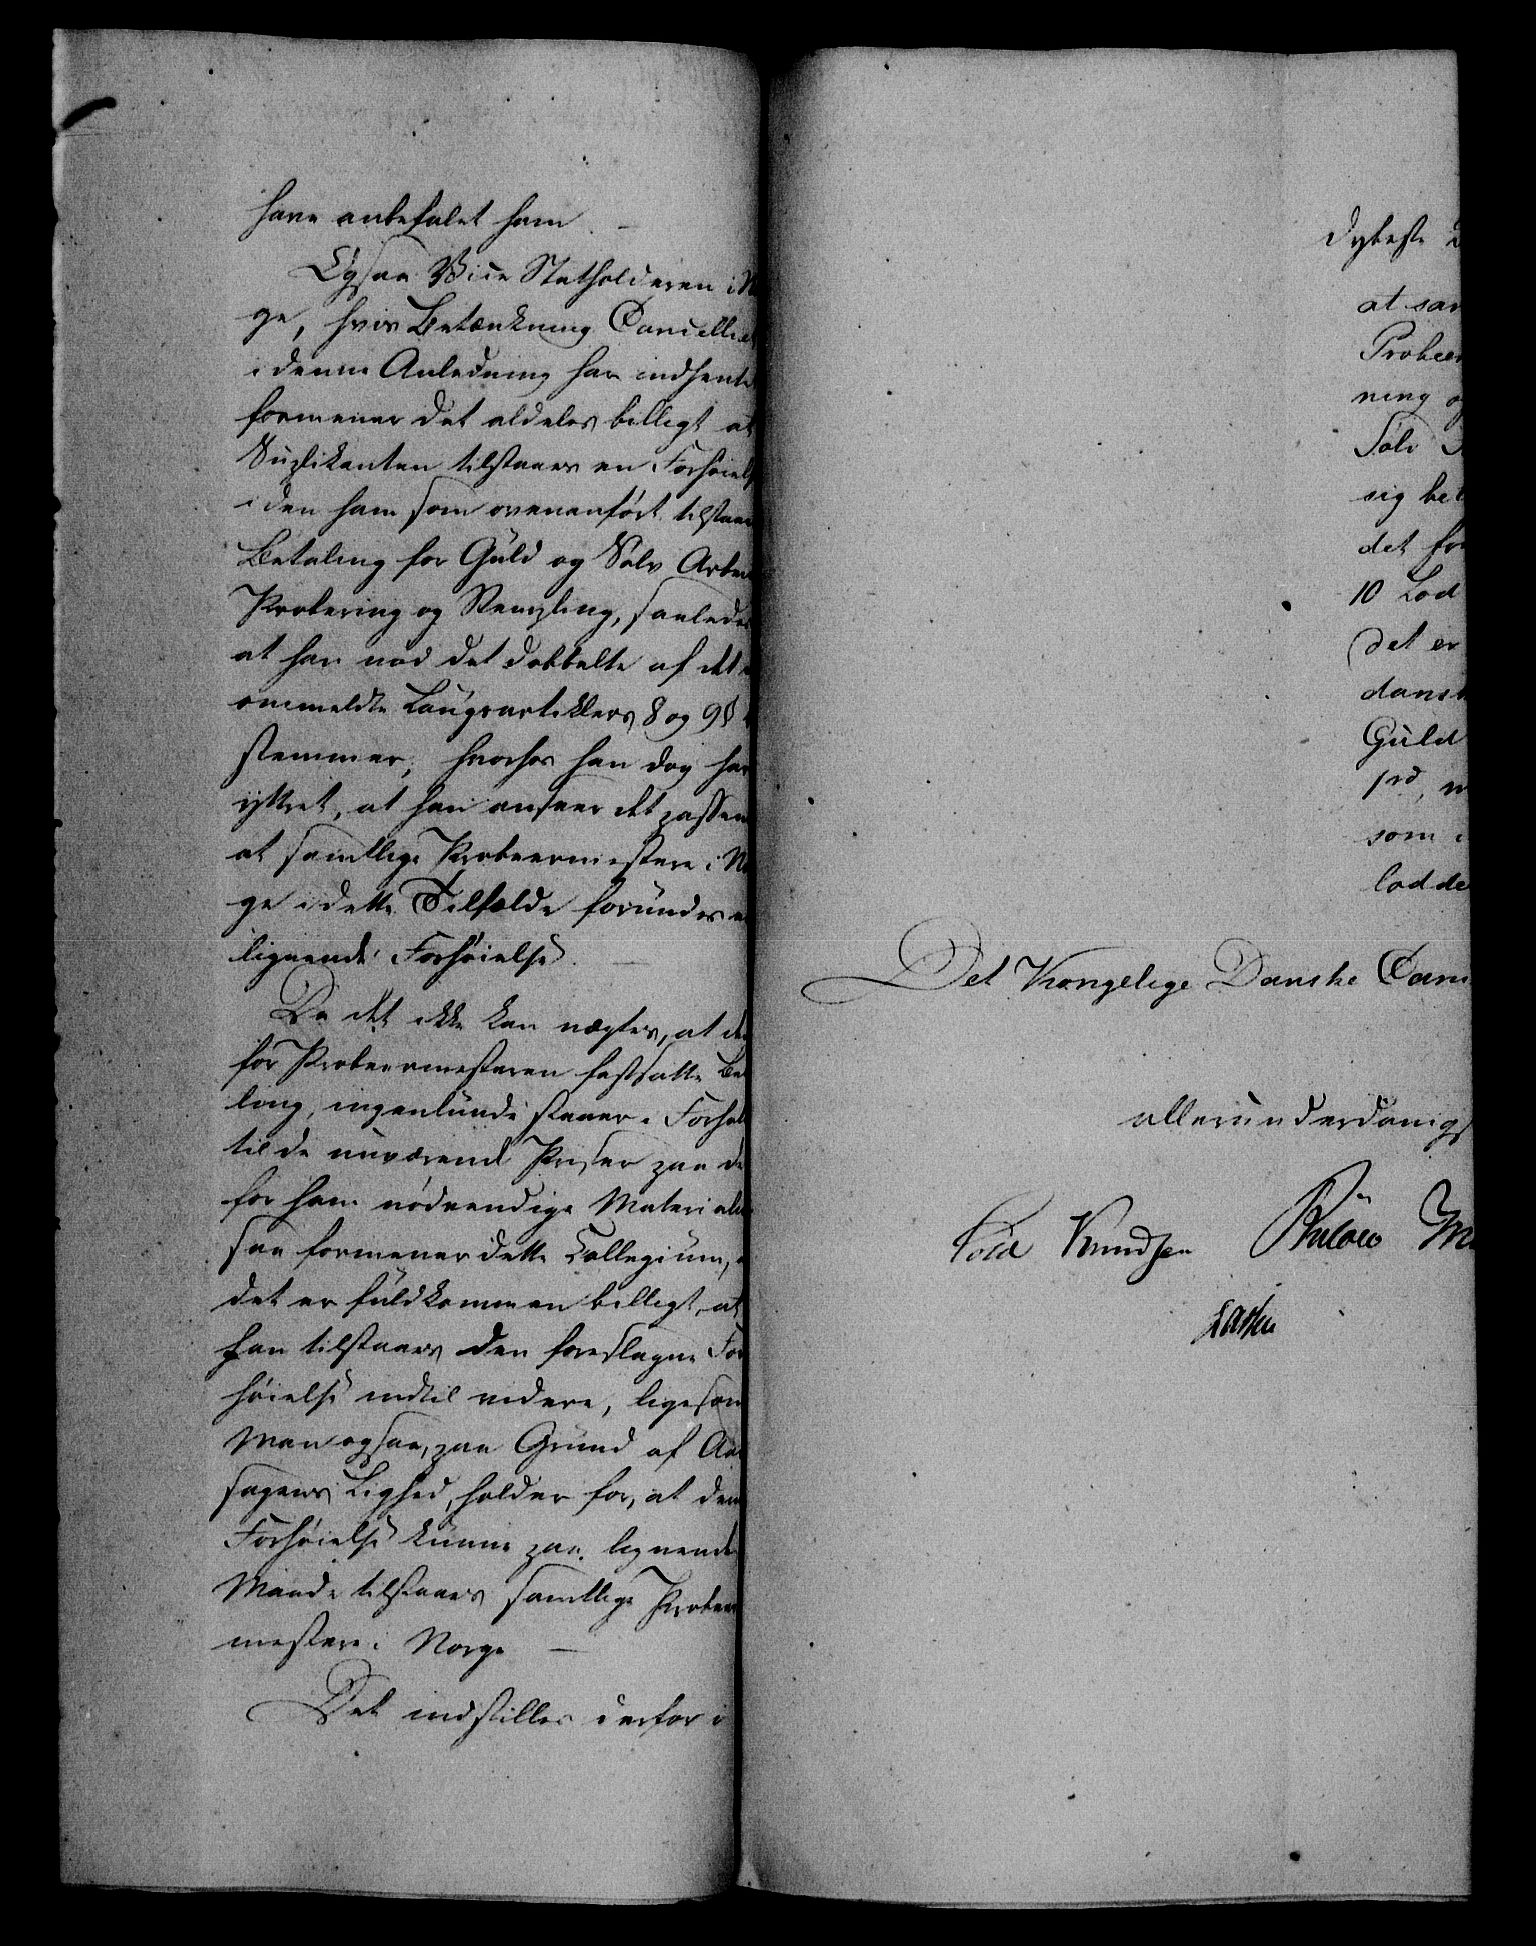 have anbefalet ham. —
Ogsaa Vice Statholderen i No
ge, hvis Betænkning Cancellie
i denne Anledning har indhente
formener det aldeles billigt at
Suplikanten tilstaaes en Forhöiels
i den ham som ovenanfört tilstaae
Betaling for Guld og Sölv Arbei
Probering og Stempling, saaledes
at han nöd det dobbelte af det
ommeldte Laugsartiklers 8 og 9 §
stemmer; hvorhos han dog har
yttret, at han anseer det passen
at samtlige Probeermestere i No
ge i dette Tilfælde forundes en
lignende Forhöielse. —
Da det ikke kan nægtes, at de
for Probeermesteren fastsatte Be
ling, ingenlunde staaer i Forhol
til de nuværende Priser paa de
for ham nödvendige Materiale
saa formener dette Collegium,
det er fuldkommen billigt, at
han tilstaaes den foreslagne For
höielse indtil videre, ligesom
Man ogsaa, paa Grund af Aar
sagens Lighed, holder for, at den
Forhöielse kunne paa lignende
Maade tilstaaes samtlige Probeer
mestere i Norge —
Det indstilles derfor i
dybeste
at sam
Probeer
ning og
Sölv
sig bet
det fo
10 Lod
det er
dansk
Guld
1rd,
som i
lodde
Det Kongelige Danske Canc
allerunderdanigs
Cold Knudsen Bülow M
Lassen